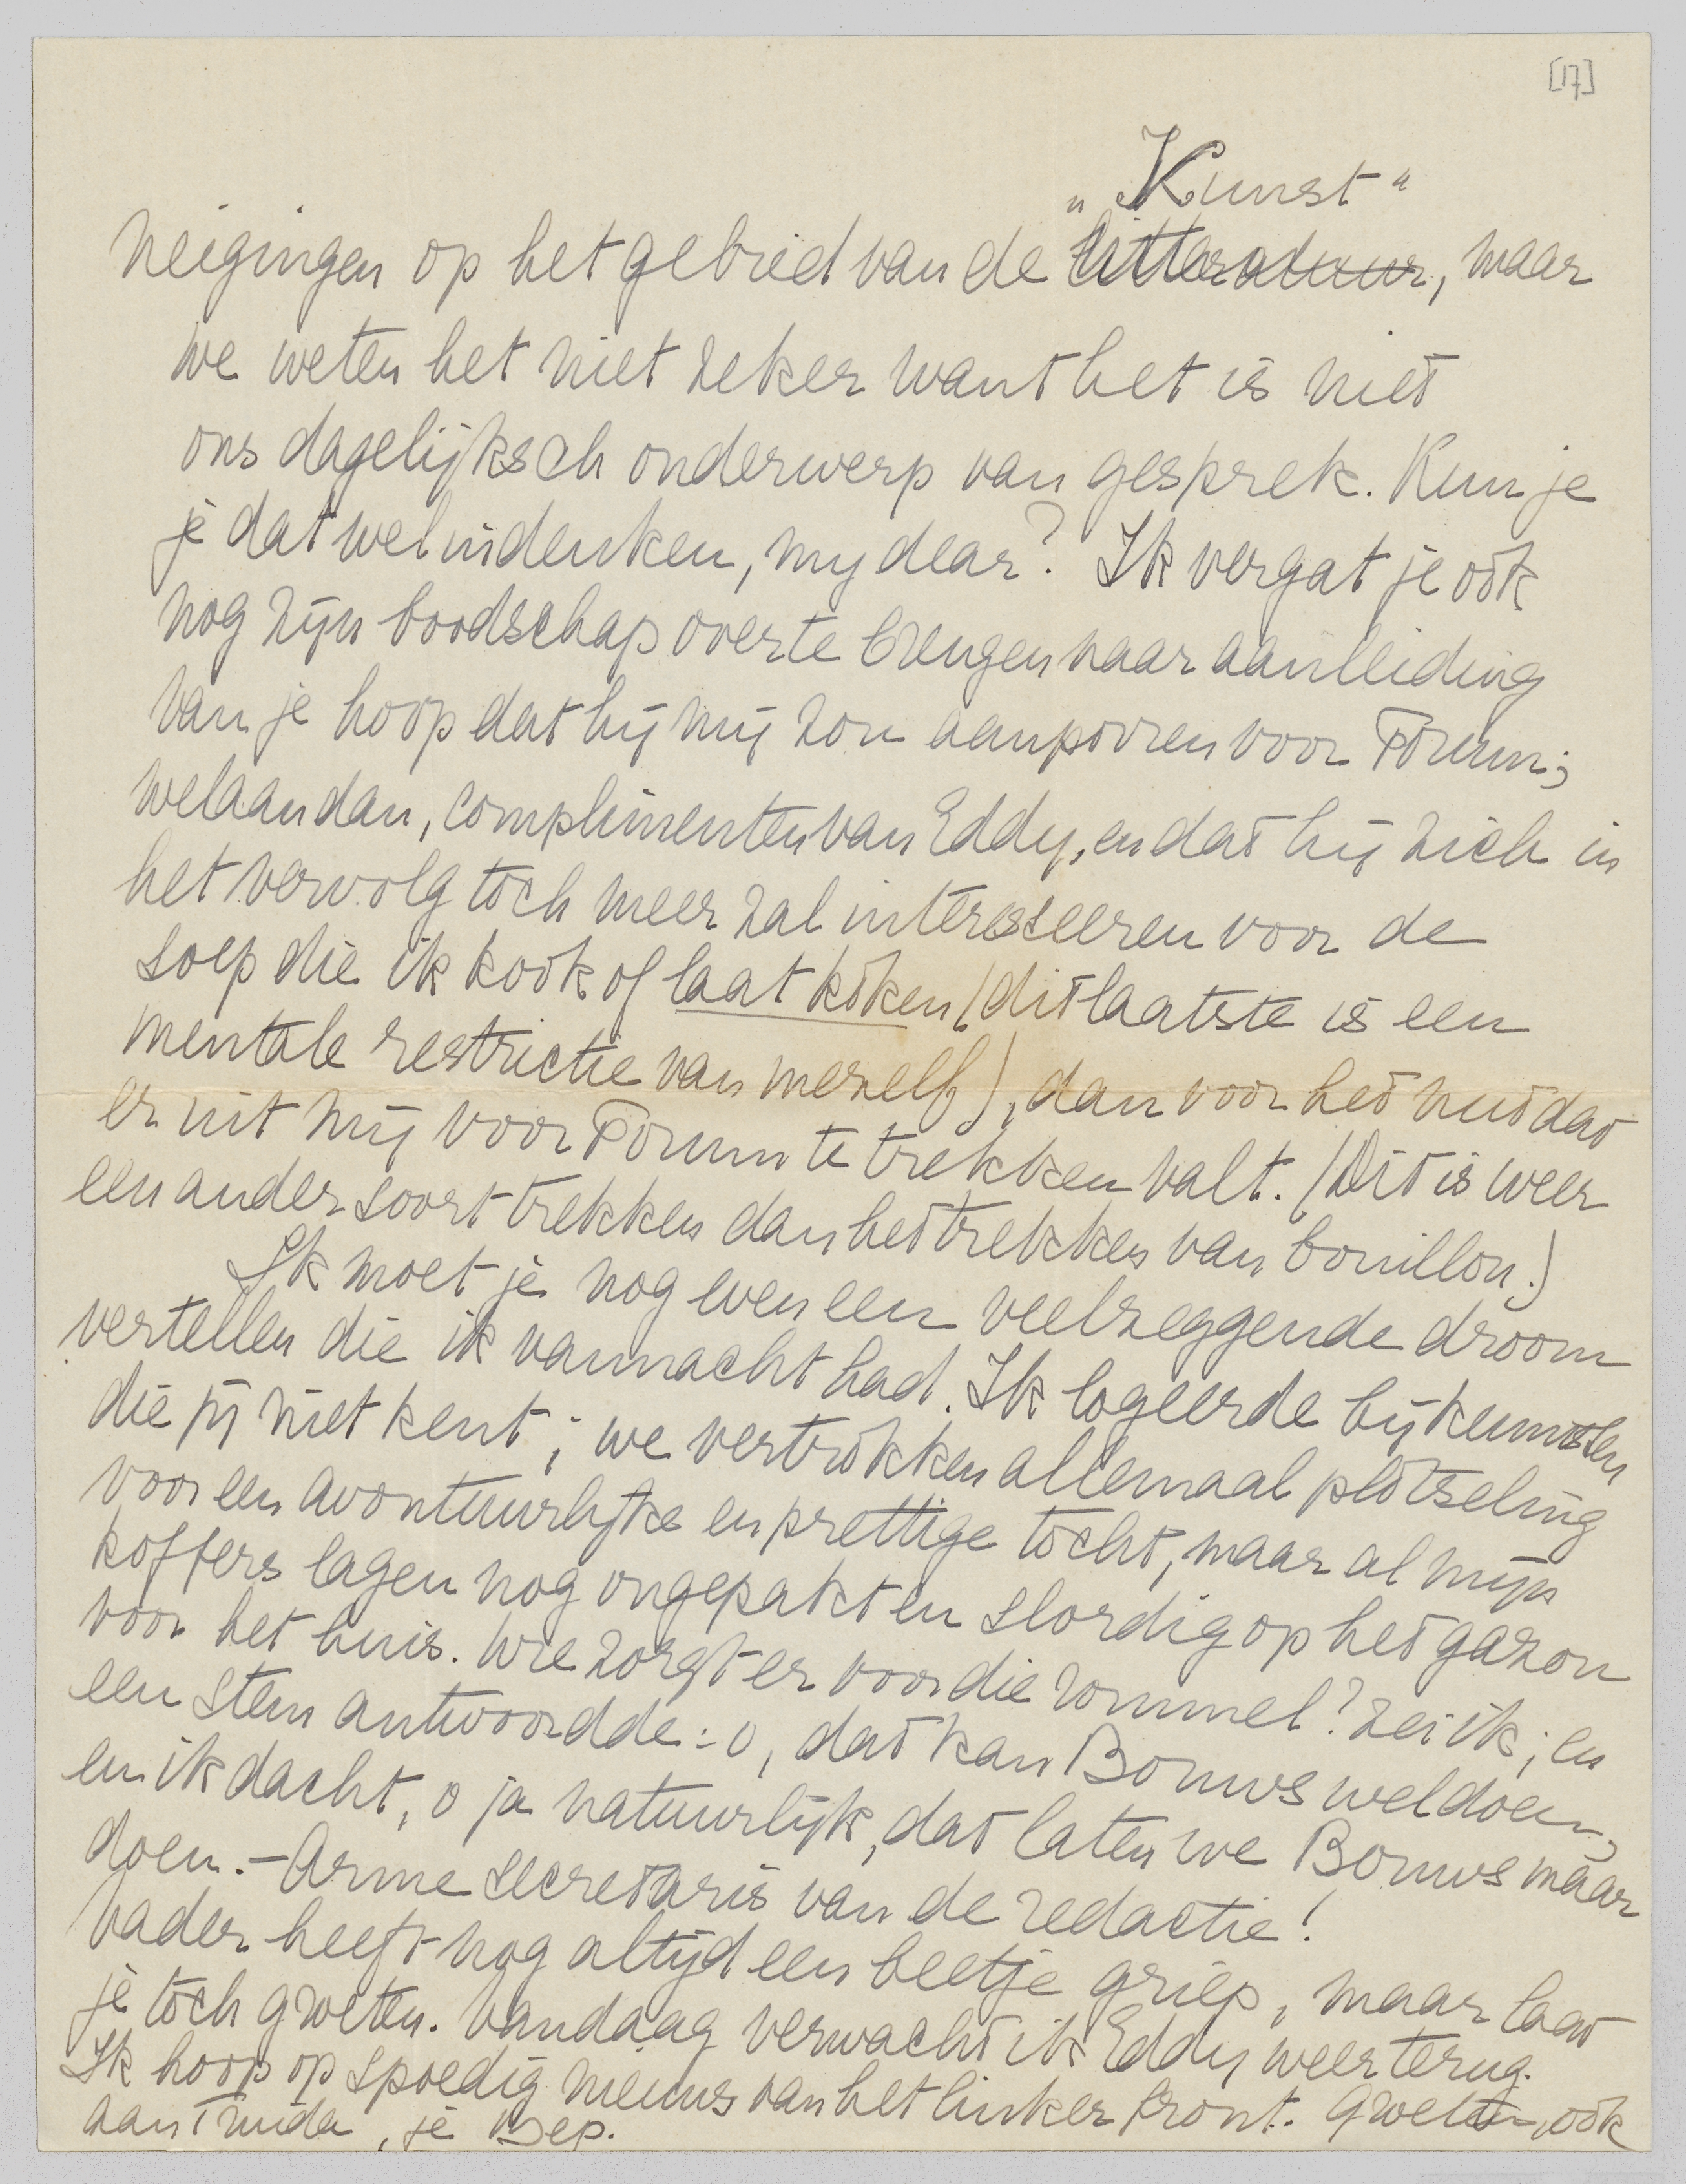 [17]
„Kunst“
neigingen op het gebied van de litteratuur, maar
we weten het niet zeker want het is niet
ons dagelijksch onderwerp van gesprek. Kun je
je dat wel indenken, my dear? Ik vergat je ook
nog zijn boodschap over te brengen naar aanleiding
van je hoop dat hij mij zou aanporren voor Forum;
welaan dan, complimenten van Eddy, en dat hij zich in
het vervolg toch meer zal interesseeren voor de
soep die ik kook of laat koken (dit laatste is een
mentale restrictie van mezelf), dan voor het nut dat
er uit mij voor Forum te trekken valt. (Dit is weer
een ander soort trekken dan het trekken van bouillon.)
Ik moet je nog even een veelzeggende droom
vertellen die ik vannacht had. Ik logeerde bij kennissen
die jij niet kent; we vertrokken allemaal plotseling
voor een avontuurlijke en prettige tocht, maar al mijn
koffers lagen nog ongepakt en slordig op het gazon
voor het huis. Wie zorgt er voor die rommel? zei ik; en
een stem antwoordde: o, dat kan Bouws wel doen,
en ik dacht, o ja natuurlijk, dat laten we Bouws maar
doen. – Arme secretaris van de redactie!
Vader heeft nog altijd een beetje griep, maar laat
je toch groeten. Vandaag verwacht ik Eddy weer terug.
Ik hoop op spoedig nieuws van het linker front. Groeten, ook
aan Truida, je Bep.